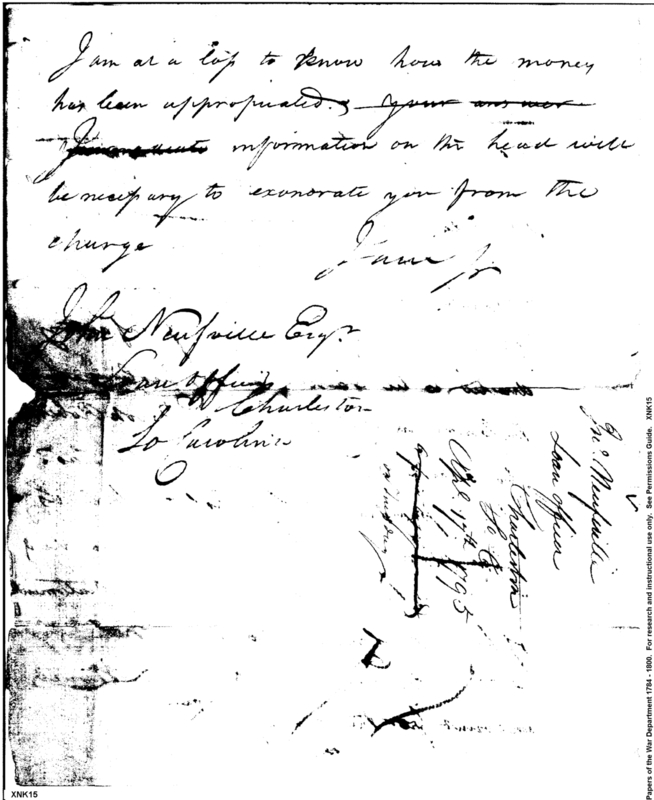 I am at a loss to know how the money
has been appropriated. your answer
information on this head will
be necessary to exonorate you from the
charge
I am Sr
John Neufville Esqr.
Loan Officer
Charleston
So Carolina
Jno. Neufville
Loan Officer
Charleston
So C.
Apl 17th 1795
XNK15
Papers of the War Department 1784 - 1800. For research and instructional use only. See Permissions Guide. XNK15